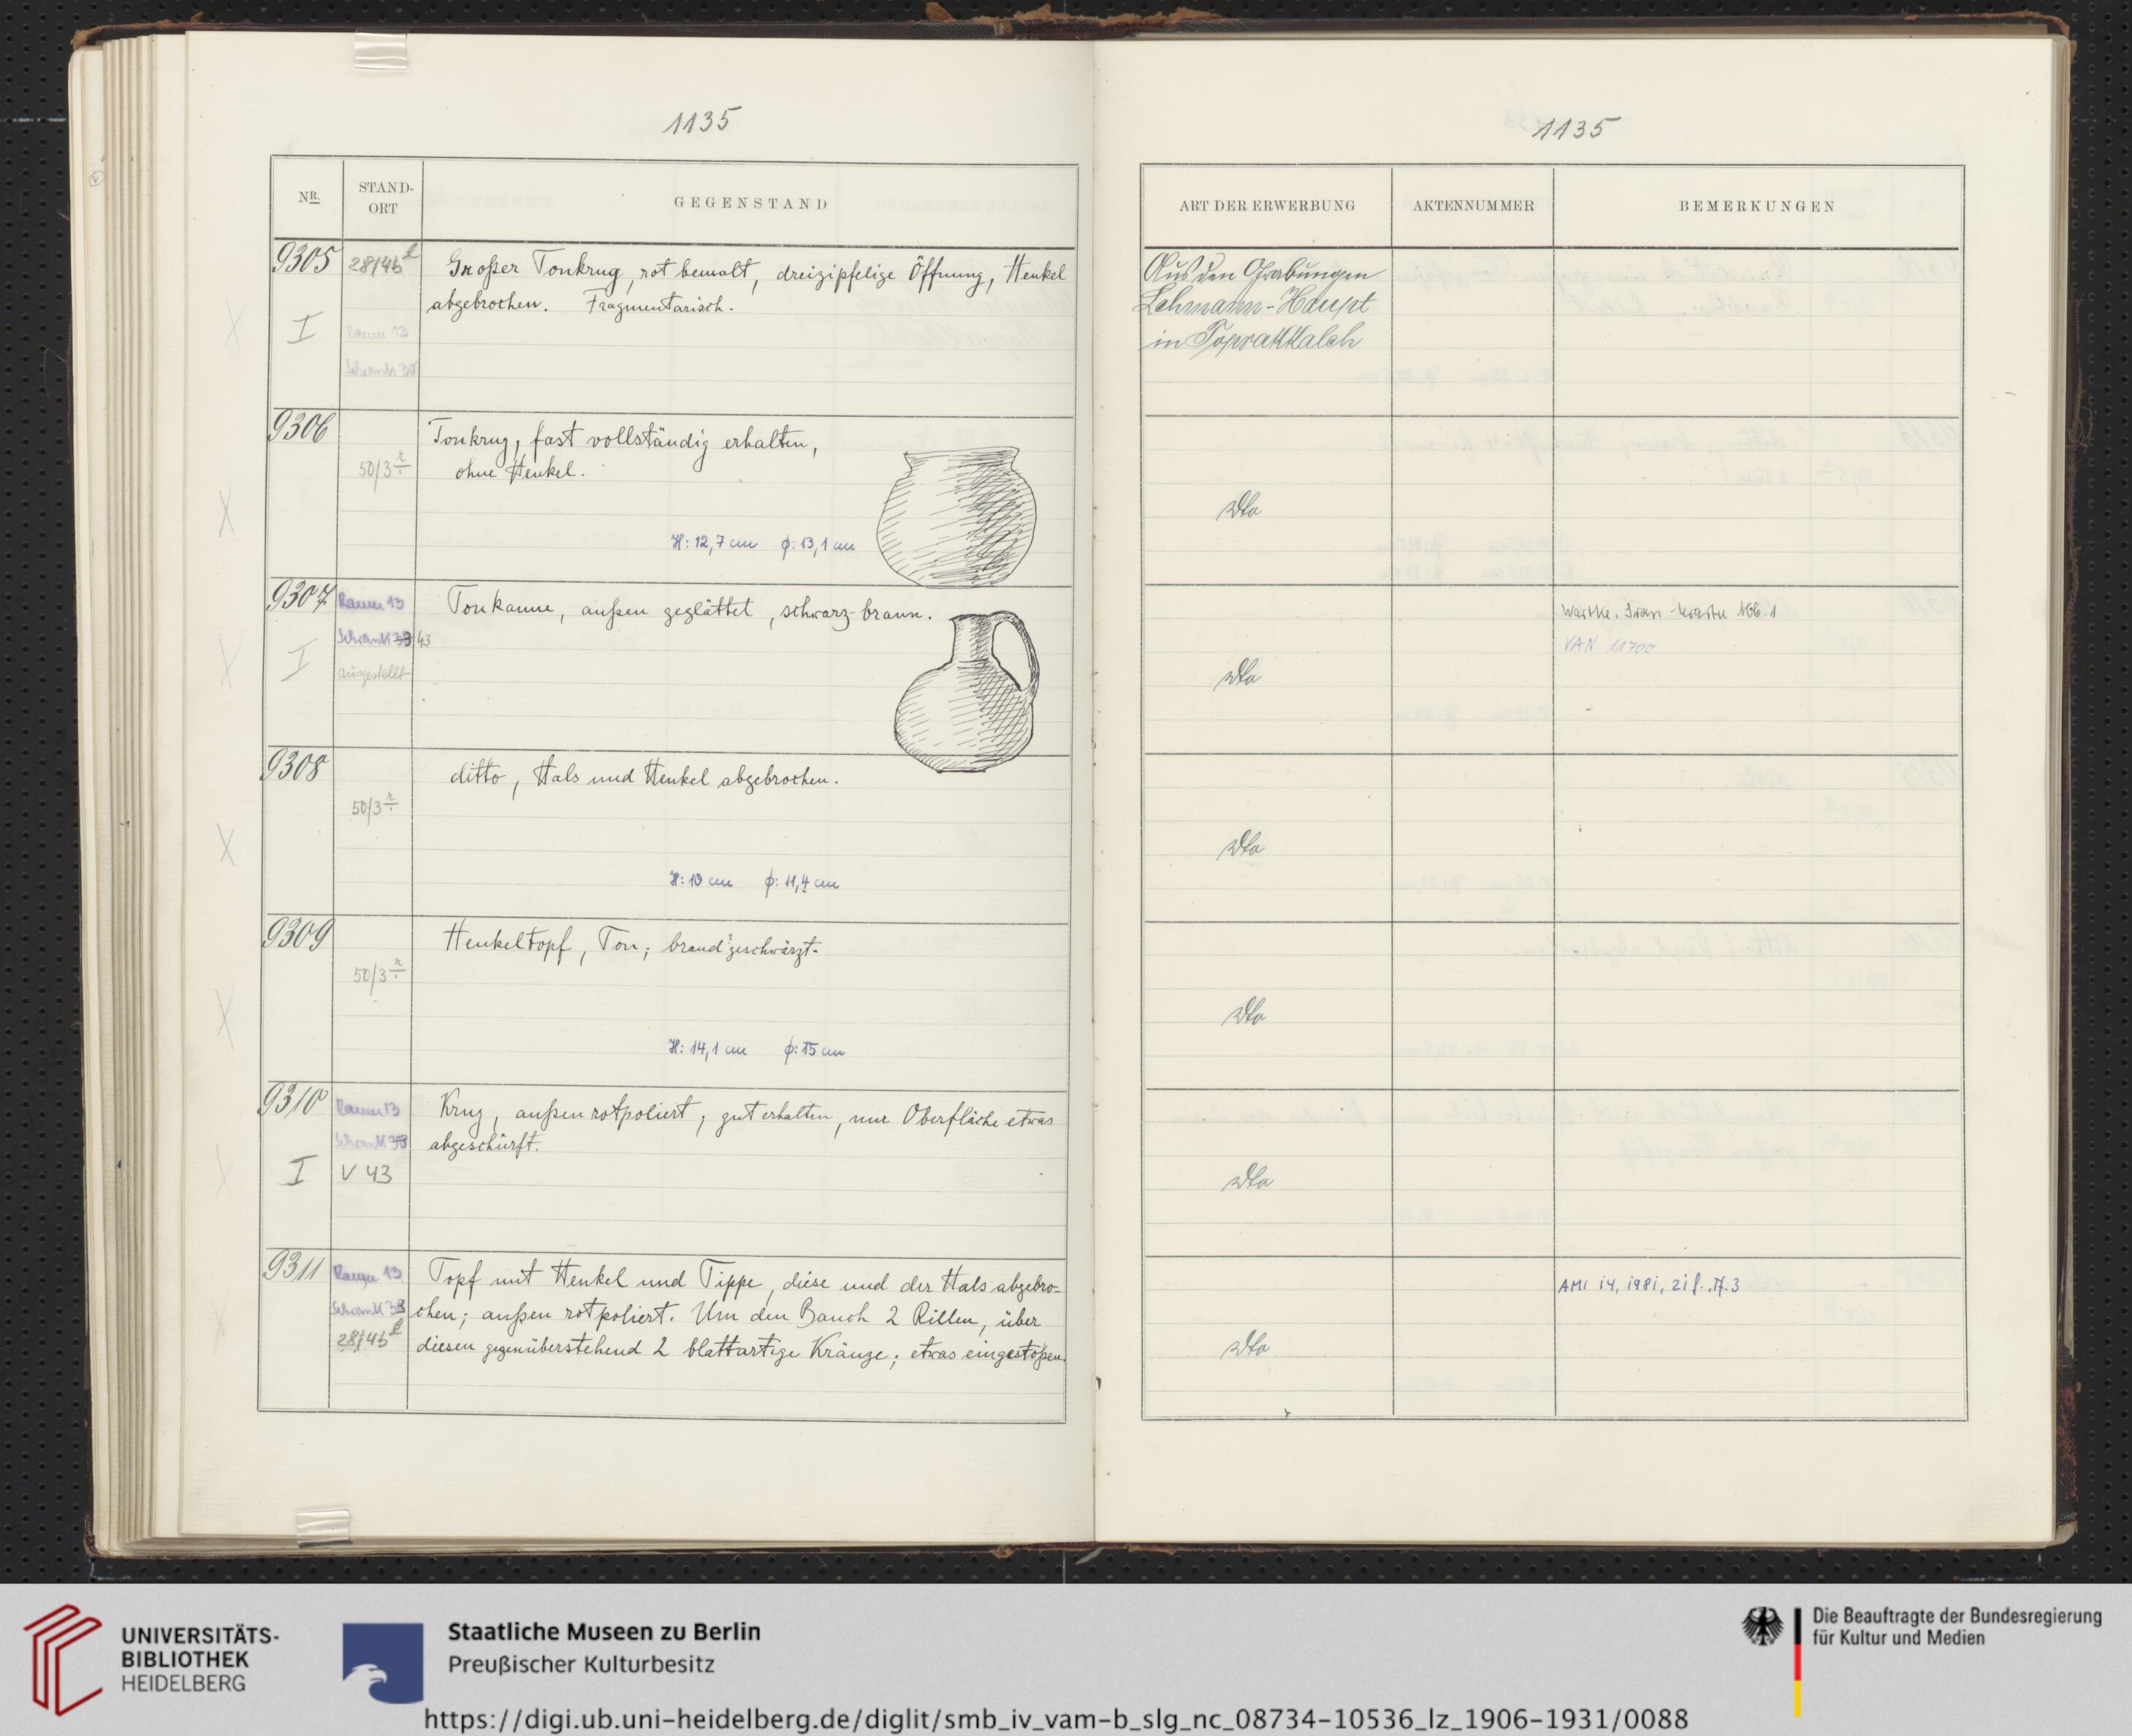 1135
NR.
STAND-
ORT
GEGENSTAND
9305
28/45
Großer Tonkrug, rot bemalt, dreizipfelige Öffnung, Henkel
abgebrochen. Fragmentarisch.
I
Raum 13
Schrank 30
9306
50/3
Tonkrug, fast vollständig erhalten,
ohne Henkel.
X
H: 12,7 cm ϕ: 13,1 cm
9307
Raum 13
Tonkanne, außen geglättet, schwarz-braun.
Schrank 43
I
ausgestellt
9308
ditto, Hals und Henkel abgebrochen.
50/3
X
H: 10 cm ϕ: 11,4 cm
9309
Henkeltopf, Ton; brand?geschwärzt.
50/3
X
H: 14,1 cm ϕ: 15 cm
9310
Raum 13
Krug, außen rotpoliert, gut erhalten, nur Oberfläche etwas
Schrank
abgeschürft.
I
V 43
9311
Raum 13
Topf mit Henkel und Tippe, diese und der Hals abgebro-
Schrank
chen; außen rotpoliert. Um den Bauch 2 Rillen, über
28/45
diesen gegenüberstehend 2 blattartige Kränze; etwas eingestoßen.
1135
ART DER ERWERBUNG
AKTENNUMMER
BEMERKUNGEN
Aus den Grabungen
Lehmann-Haupt
in Toprakkaleh
dto
Wartke, Abb. 1
VAN 11700
dto
dto
dto
dto
AMI 14, 1981, 21 f.
dto
UNIVERSITÄTS-
BIBLIOTHEK
HEIDELBERG
Staatliche Museen zu Berlin
Preußischer Kulturbesitz
Die Beauftragte der Bundesregierung
für Kultur und Medien
https://digi.ub.uni-heidelberg.de/diglit/smb_iv_vam-b_slg_nc_08734-10536_lz_1906-1931/0088